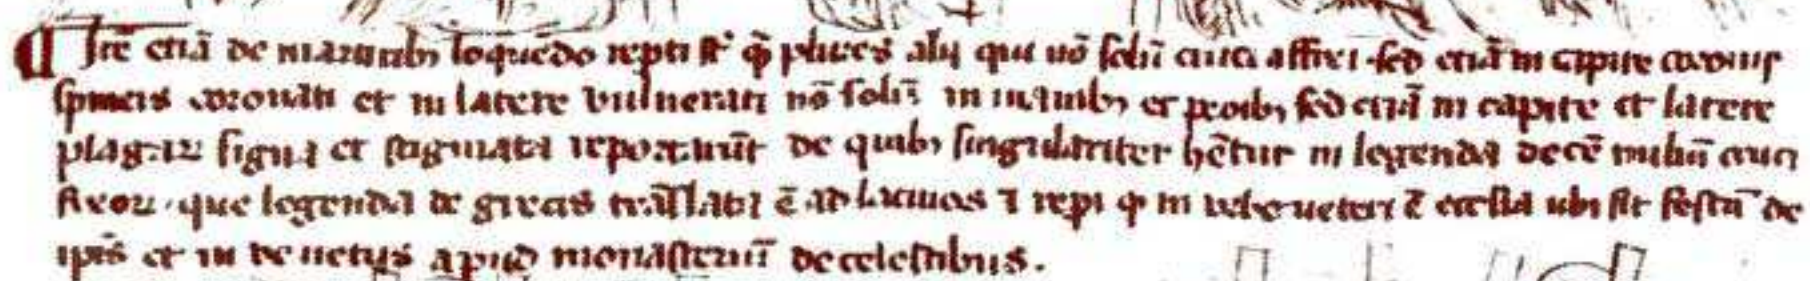 ¶ Itē etiā de martiribꝫ loquēdo repti st' ꝙ plures alij qui nō solū cruci affixi · sed etiā in capite coronis
spineis coronati et in latere vulnerati nō solū in manibꝫ et pedibꝫ sed etiā in capite et latere
plagaꝝ signa et stigmata reportarūt de quibꝫ singulariter hētur in legenda decē miliū cruci
fixoꝝ · que legenda de grecis trāslata ē ad latinos ⁊ repi ꝙ in urbe veteri ē ecclia ubi fit festū de
ipīs et in venetijs apud monasteriū de celestibus .